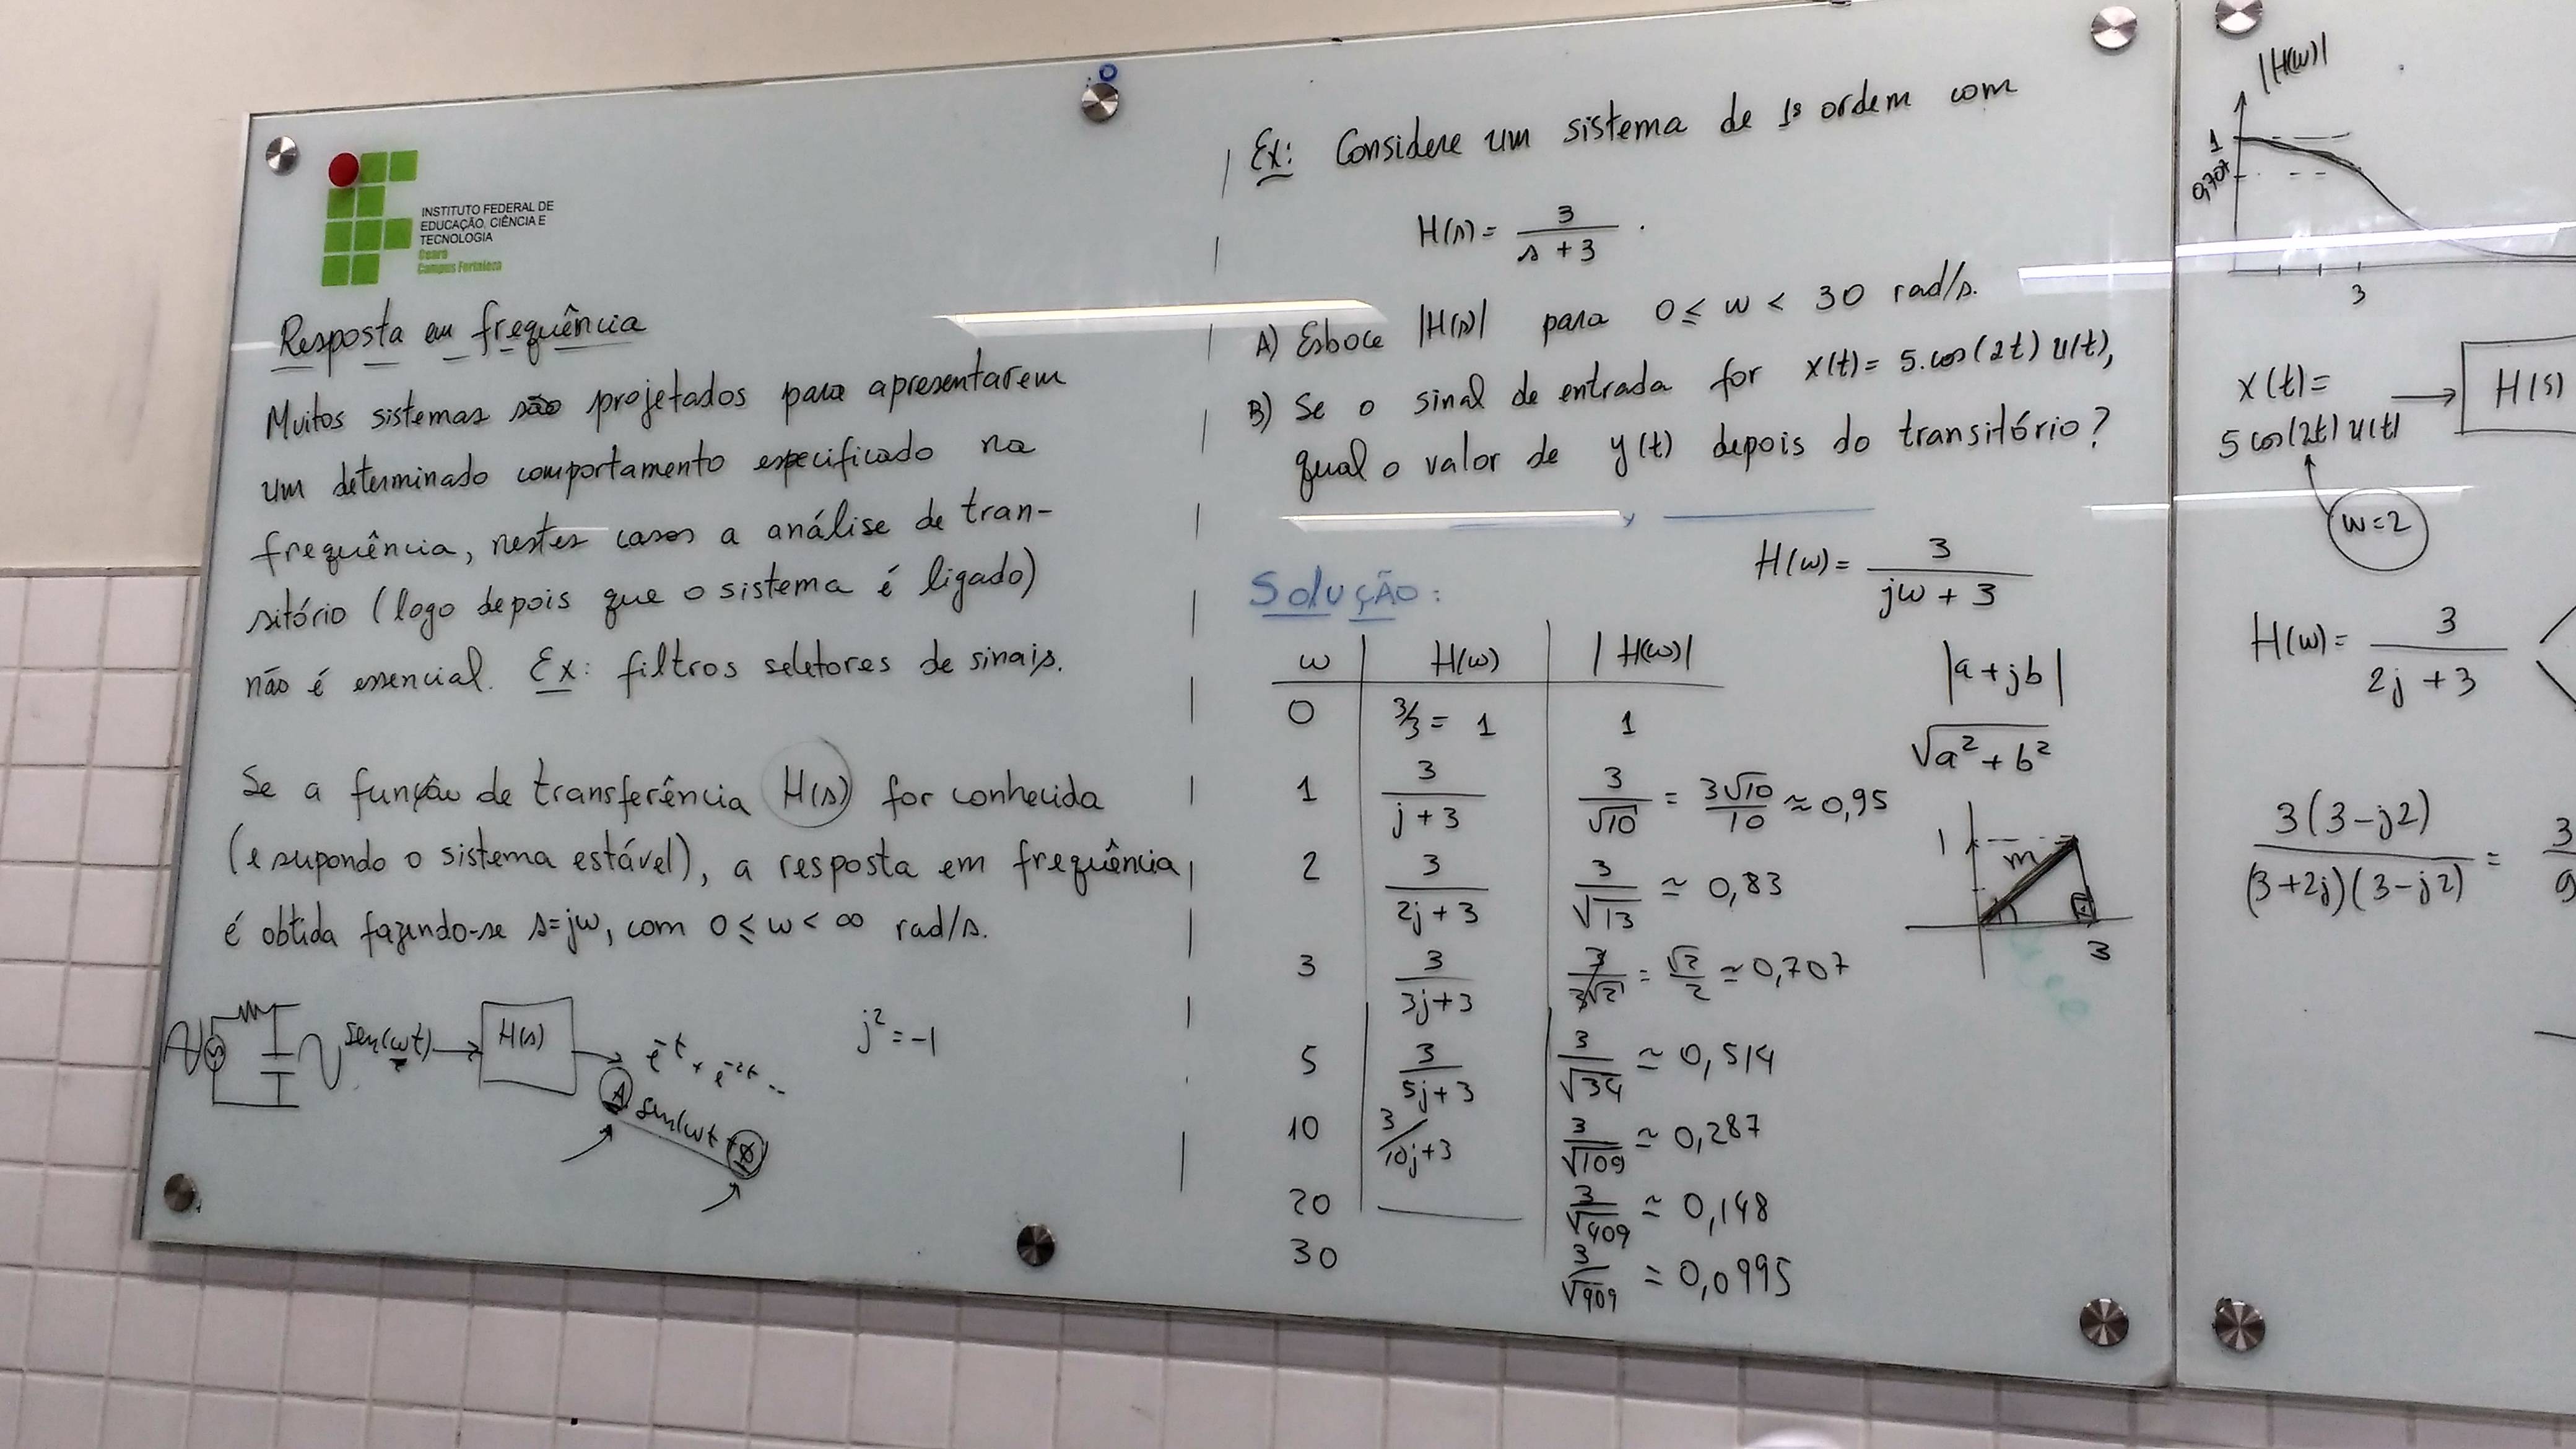 INSTITUTO FEDERAL DE
EDUCAÇÃO, CIÊNCIA E
TECNOLOGIA
Ceará
Campus Fortaleza
Resposta em frequência
Muitos sistemas são projetados para apresentarem
um determinado comportamento especificado na
frequência, nestes casos a análise de tran-
sitório (logo depois que o sistema é ligado)
não é essencial. Ex: filtros seletores de sinais.
Se a função de transferência H(s) for conhecida
(e supondo o sistema estável), a resposta em frequência
é obtida fazendo-se s=jω, com 0 ≤ ω < ∞ rad/s.
sen(ωt) → H(s) → e^-t + e^-2t ...
A sen(ωt + Ø)
j² = -1
Ex: Considere um sistema de 1ª ordem com
H(s) = 3/(s + 3) .
A) Esboce |H(s)| para 0 ≤ ω < 30 rad/s.
B) Se o sinal de entrada for x(t) = 5.cos(2t) u(t),
qual o valor de y(t) depois do transitório?
Solução:
H(ω) = 3/(jω + 3)
ω | H(ω) | |H(ω)|
0 | 3/3 = 1 | 1
1 | 3/(j+3) | 3/√10 = 3√10/10 ≈ 0,95
2 | 3/(2j+3) | 3/√13 ≃ 0,83
3 | 3/(3j+3) | 3/3√2 = √2/2 ≃ 0,707
5 | 3/(5j+3) | 3/√34 ≃ 0,514
10 | 3/(10j+3) | 3/√109 ≃ 0,287
20 | — | 3/√409 ≃ 0,148
30 | 3/√909 = 0,0995
|a+jb|
√(a² + b²)
1
m
3
|H(ω)|
1
0,707
3
x(t) =
5 cos(2t) u(t)
→ H(s)
ω=2
H(ω) = 3/(2j + 3)
3(3-j2)/((3+2j)(3-j2)) =